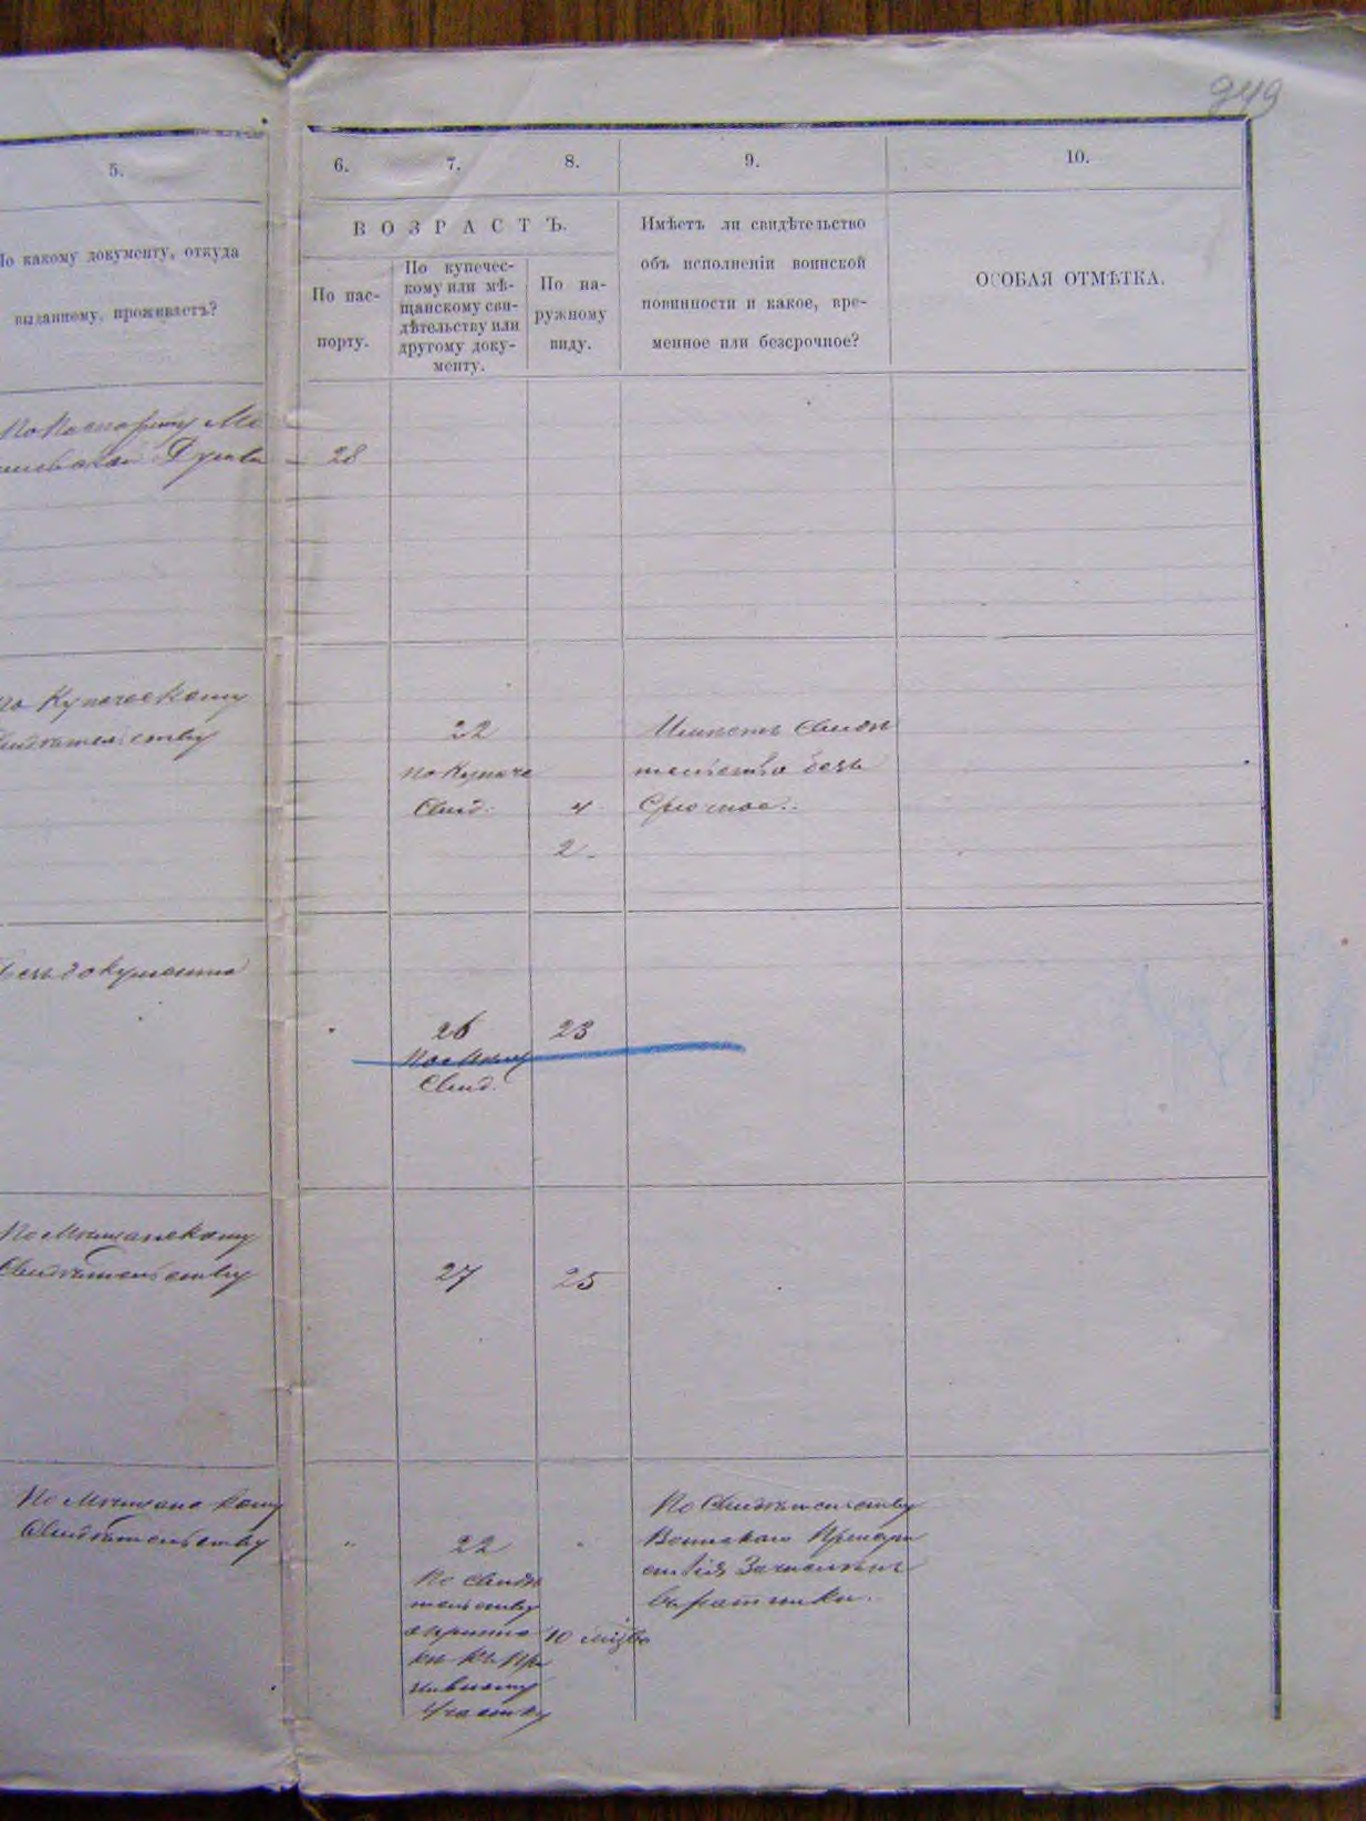 949
5.
6.
7.
8.
9.
10.
По какому документу, откуда
выданному, проживаетъ?
ВОЗРАСТЪ.
По пас-
порту.
По купечес-
кому или мѣ-
щанскому сви-
дѣтельству или
другому доку-
менту.
По на-
ружному
виду.
Имѣетъ ли свидѣтельство
объ исполненіи воинской
повинности и какое, вре-
менное или безсрочное?
ОСОБАЯ ОТМѢТКА.
По Паспорту
28
По Купческому
Свидѣтельству
22
по Купече
Свид.
4
2
Имѣетъ Свидѣ
тельство безъ
Срочное.
Безъ документа
26
По Мѣщ
Свид.
23
По Мѣщанскому
Свидѣтельству
27
25
По Мѣщанскому
Свидѣтельству
22
По Свидѣ
тельству
о припис
кѣ къ При
зывному
Участку
10 мѣс
По Свидѣтельству
Воинскаго Присут
ствія Зачисленъ
въ ратники.